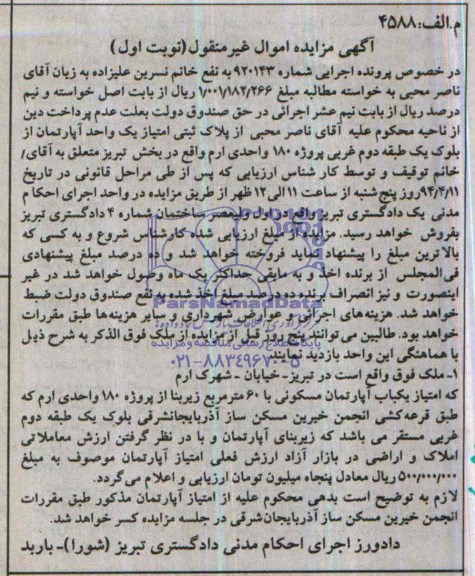 م.الف:۴۵۸۸
آگهی مزایده اموال غیرمنقول(نوبت اول)
در خصوص پرونده اجرایی شماره ۹۲۰۱۴۳ به نفع خانم نسرین علیزاده به زیان آقای
ناصر محبی به خواسته مطالبه مبلغ ۱/۰۰۷/۱۸۲/۲۶۶ ریال از بابت اصل خواسته و نیم
درصد ریال از بابت نیم عشر اجرائی در حق صندوق دولت بعلت عدم پرداخت دین
از ناحیه محکوم علیه آقای ناصر محبی از پلاک ثبتی امتیاز یک واحد آپارتمان از
بلوک یک طبقه دوم غربی پروژه ۱۸۰ واحدی ارم واقع در بخش تبریز متعلق به آقای/
خانم توقیف و توسط کار شناس ارزیابی که پس از طی مراحل قانونی در تاریخ
۹۴/۴/۱۱روز پنج شنبه از ساعت ۱۱الی۱۲ ظهر از طریق مزایده در واحد اجرای احکام
مدنی یک دادگستری تبریز واقع در اول ولیعصر ساختمان شماره ۴ دادگستری تبریز
بفروش خواهد رسید. مزایده از مبلغ ارزیابی شده کارشناس شروع و به کسی که
بالاترین مبلغ را پیشنهاد نماید فروخته خواهد شد و ده درصد مبلغ پیشنهادی
فی‌المجلس از برنده اخذ و به مابقی حداکثر یک ماه وصول خواهد شد در غیر
اینصورت و نیز انصراف برنده ده درصد مبلغ اخذ شده به نفع صندوق دولت ضبط
خواهد شد. هزینه‌های اجرائی و عوارض شهرداری و سایر هزینه‌ها طبق مقررات
خواهد بود. طالبین می‌توانند پنج روز قبل از مزایده از ملک فوق الذکر به شرح ذیل
با هماهنگی این واحد بازدید نمایند.
ParsNamadData
پایگاه اطلاع رسانی مناقصه و مزایده
۰۲۱-۸۸۳۴۹۶۷۰-۵
۱- ملک فوق واقع است در تبریز- خیابان - شهرک ارم
که امتیاز یکباب آپارتمان مسکونی با ۶۰مترمربع زیربنا از پروژه ۱۸۰ واحدی ارم که
طبق قرعه‌کشی انجمن خیرین مسکن ساز آذربایجانشرقی بلوک یک طبقه دوم
غربی مستقر می باشد که زیربنای آپارتمان و با در نظر گرفتن ارزش معاملاتی
املاک و اراضی در بازار آزاد ارزش فعلی امتیاز آپارتمان موصوف به مبلغ
۵۰۰/۰۰۰/۰۰۰ ریال معادل پنجاه میلیون تومان ارزیابی و اعلام می‌گردد.
لازم به توضیح است بدهی محکوم علیه از امتیاز آپارتمان مذکور طبق مقررات
انجمن خیرین مسکن ساز آذربایجان‌شرقی در جلسه مزایده کسر خواهد شد.
دادورز اجرای احکام مدنی دادگستری تبریز (شورا)- باربد